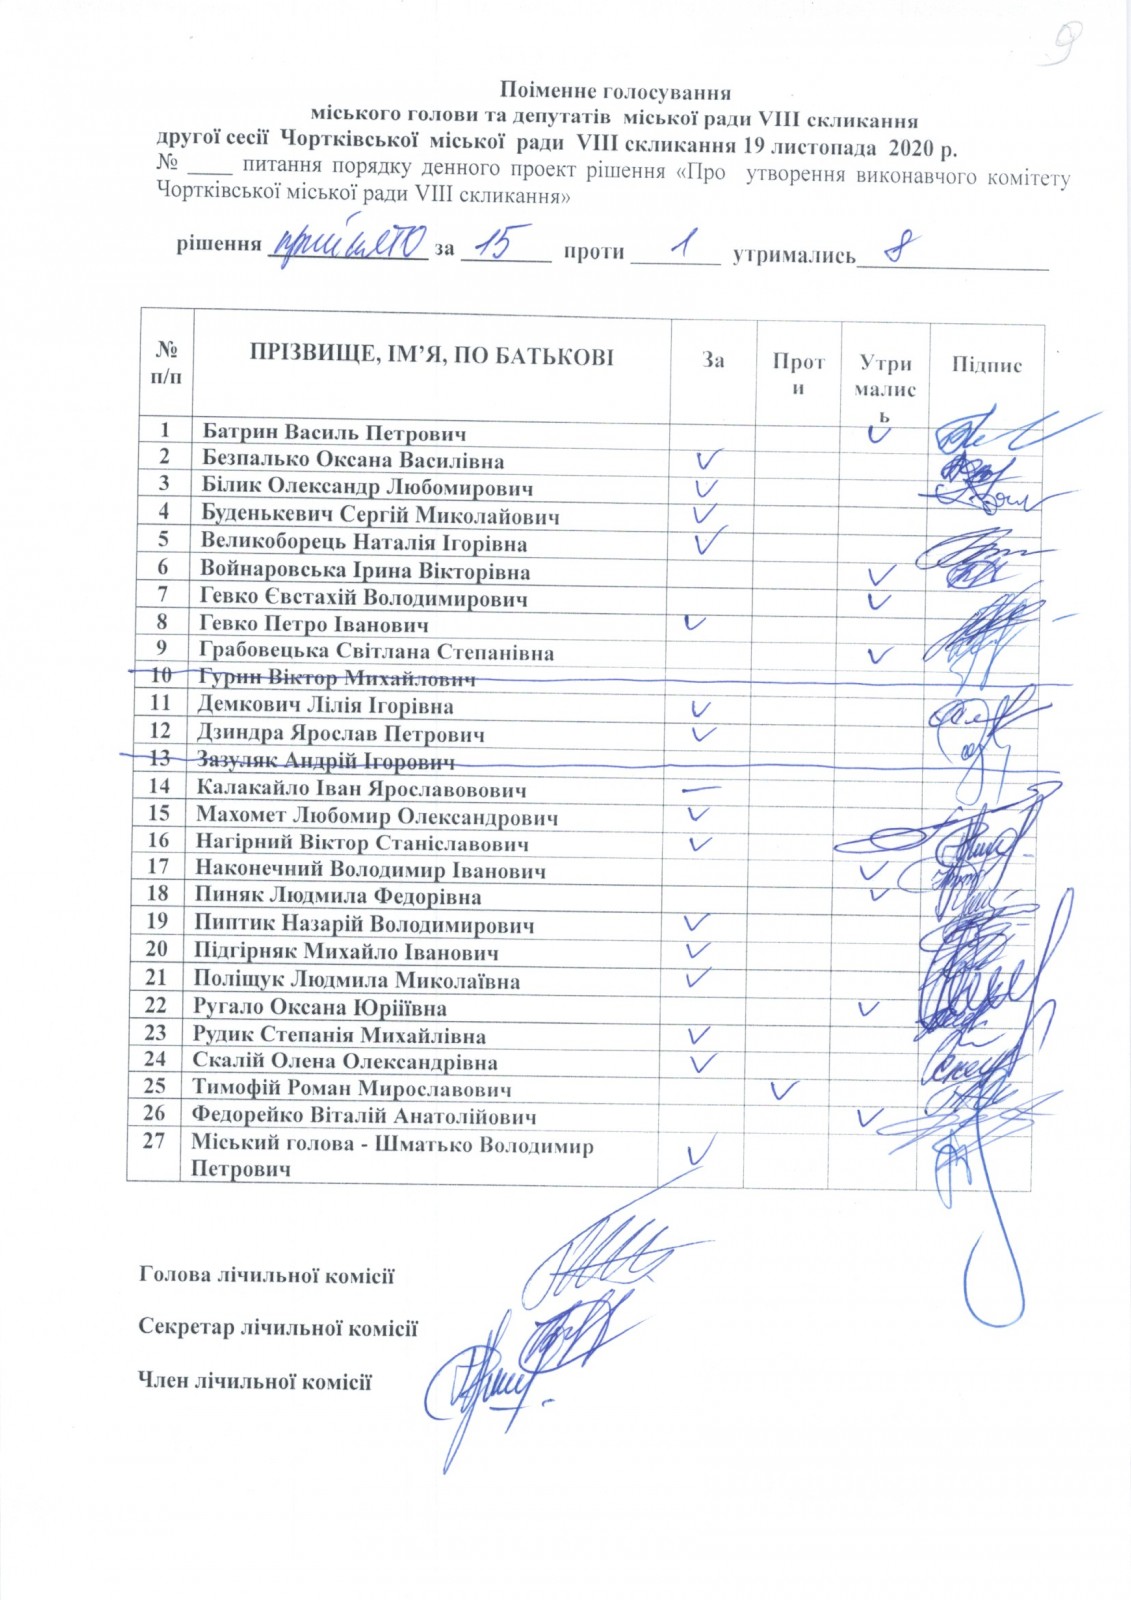 9
Поіменне голосування
міського голови та депутатів міської ради VIII скликання
другої сесії Чортківської міської ради VIII скликання 19 листопада 2020 р.
№ ____ питання порядку денного проект рішення «Про утворення виконавчого комітету
Чортківської міської ради VIII скликання»
рішення прийнято за 15 проти 1 утримались 8
№ п/п ПРІЗВИЩЕ, ІМ’Я, ПО БАТЬКОВІ За Проти Утрималисьь Підпис
1 Батрин Василь Петрович
2 Безпалько Оксана Василівна
3 Білик Олександр Любомирович
4 Буденькевич Сергій Миколайович
5 Великоборець Наталія Ігорівна
6 Войнаровська Ірина Вікторівна
7 Гевко Євстахій Володимирович
8 Гевко Петро Іванович
9 Грабовецька Світлана Степанівна
10 Гурин Віктор Михайлович
11 Демкович Лілія Ігорівна
12 Дзиндра Ярослав Петрович
13 Зазуляк Андрій Ігорович
14 Калакайло Іван Ярославовович
15 Махомет Любомир Олександрович
16 Нагірний Віктор Станіславович
17 Наконечний Володимир Іванович
18 Пиняк Людмила Федорівна
19 Пиптик Назарій Володимирович
20 Підгірняк Михайло Іванович
21 Поліщук Людмила Миколаївна
22 Ругало Оксана Юріїівна
23 Рудик Степанія Михайлівна
24 Скалій Олена Олександрівна
25 Тимофій Роман Мирославович
26 Федорейко Віталій Анатолійович
27 Міський голова - Шматько Володимир
Петрович
Голова лічильної комісії
Секретар лічильної комісії
Член лічильної комісії